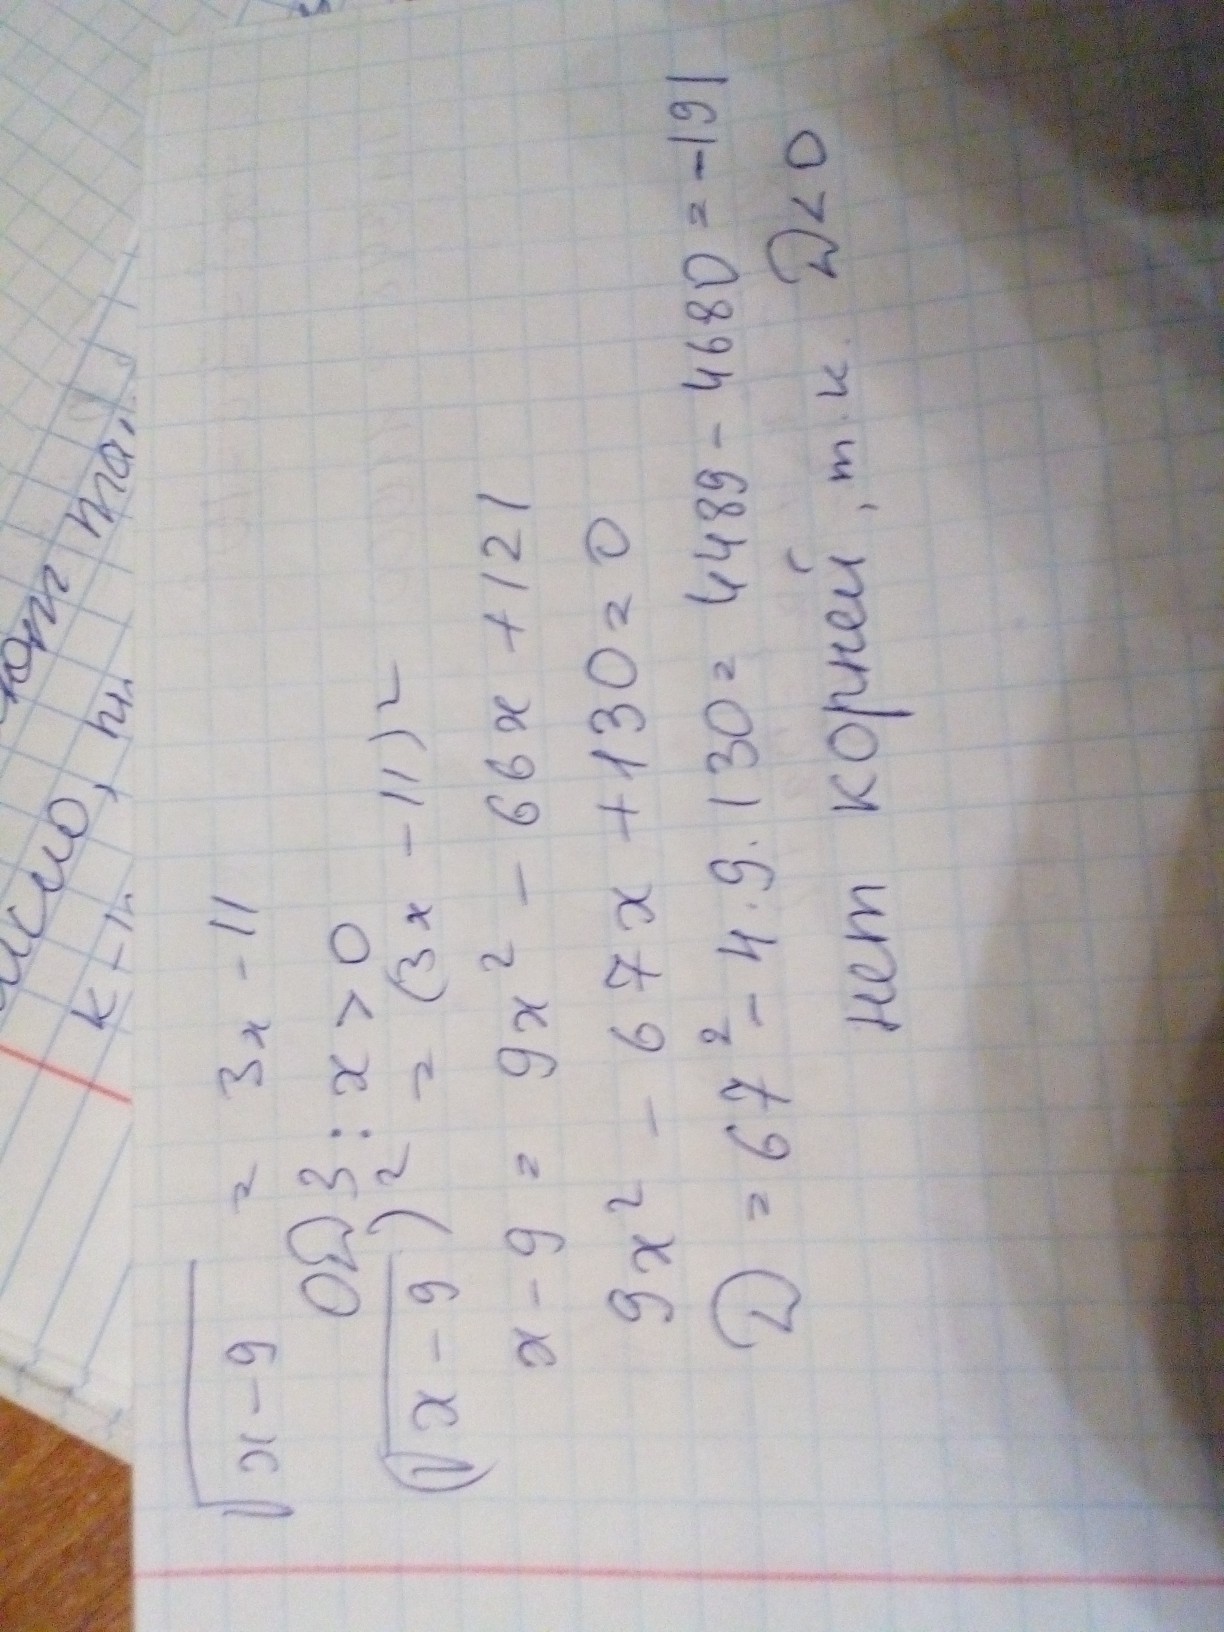 √(x-9) = 3x - 11
ОДЗ: x > 0
(√(x-9))² = (3x - 11)²
x - 9 = 9x² - 66x + 121
9x² - 67x + 130 = 0
D = 67² - 4·9·130 = 4489 - 4680 = -191
нет корней, т.к. D < 0